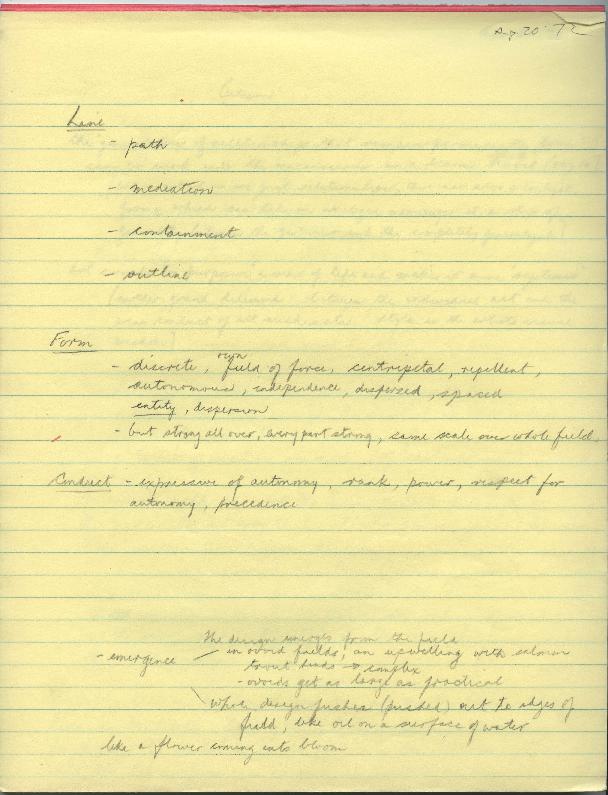 Aug 20 72
Line
- path
- mediation
- containment
- outline
Form
own
- discrete, field of force, centripetal, repellent,
autonomous, independence, dispersed, spaced
entity, dispersion
- but strong all over, every part strong, same scale over whole field.
Conduct - expressive of autonomy, rank, power, respect for
autonomy, precedence
The design emerges from the field
- emergence - in ovoid fields, an upwelling with salmon
trout heads → complex
- ovoids get as large as practical
whole design pushes (pushed) out to edges of
field, like oil on a surface of water
like a flower coming into bloom